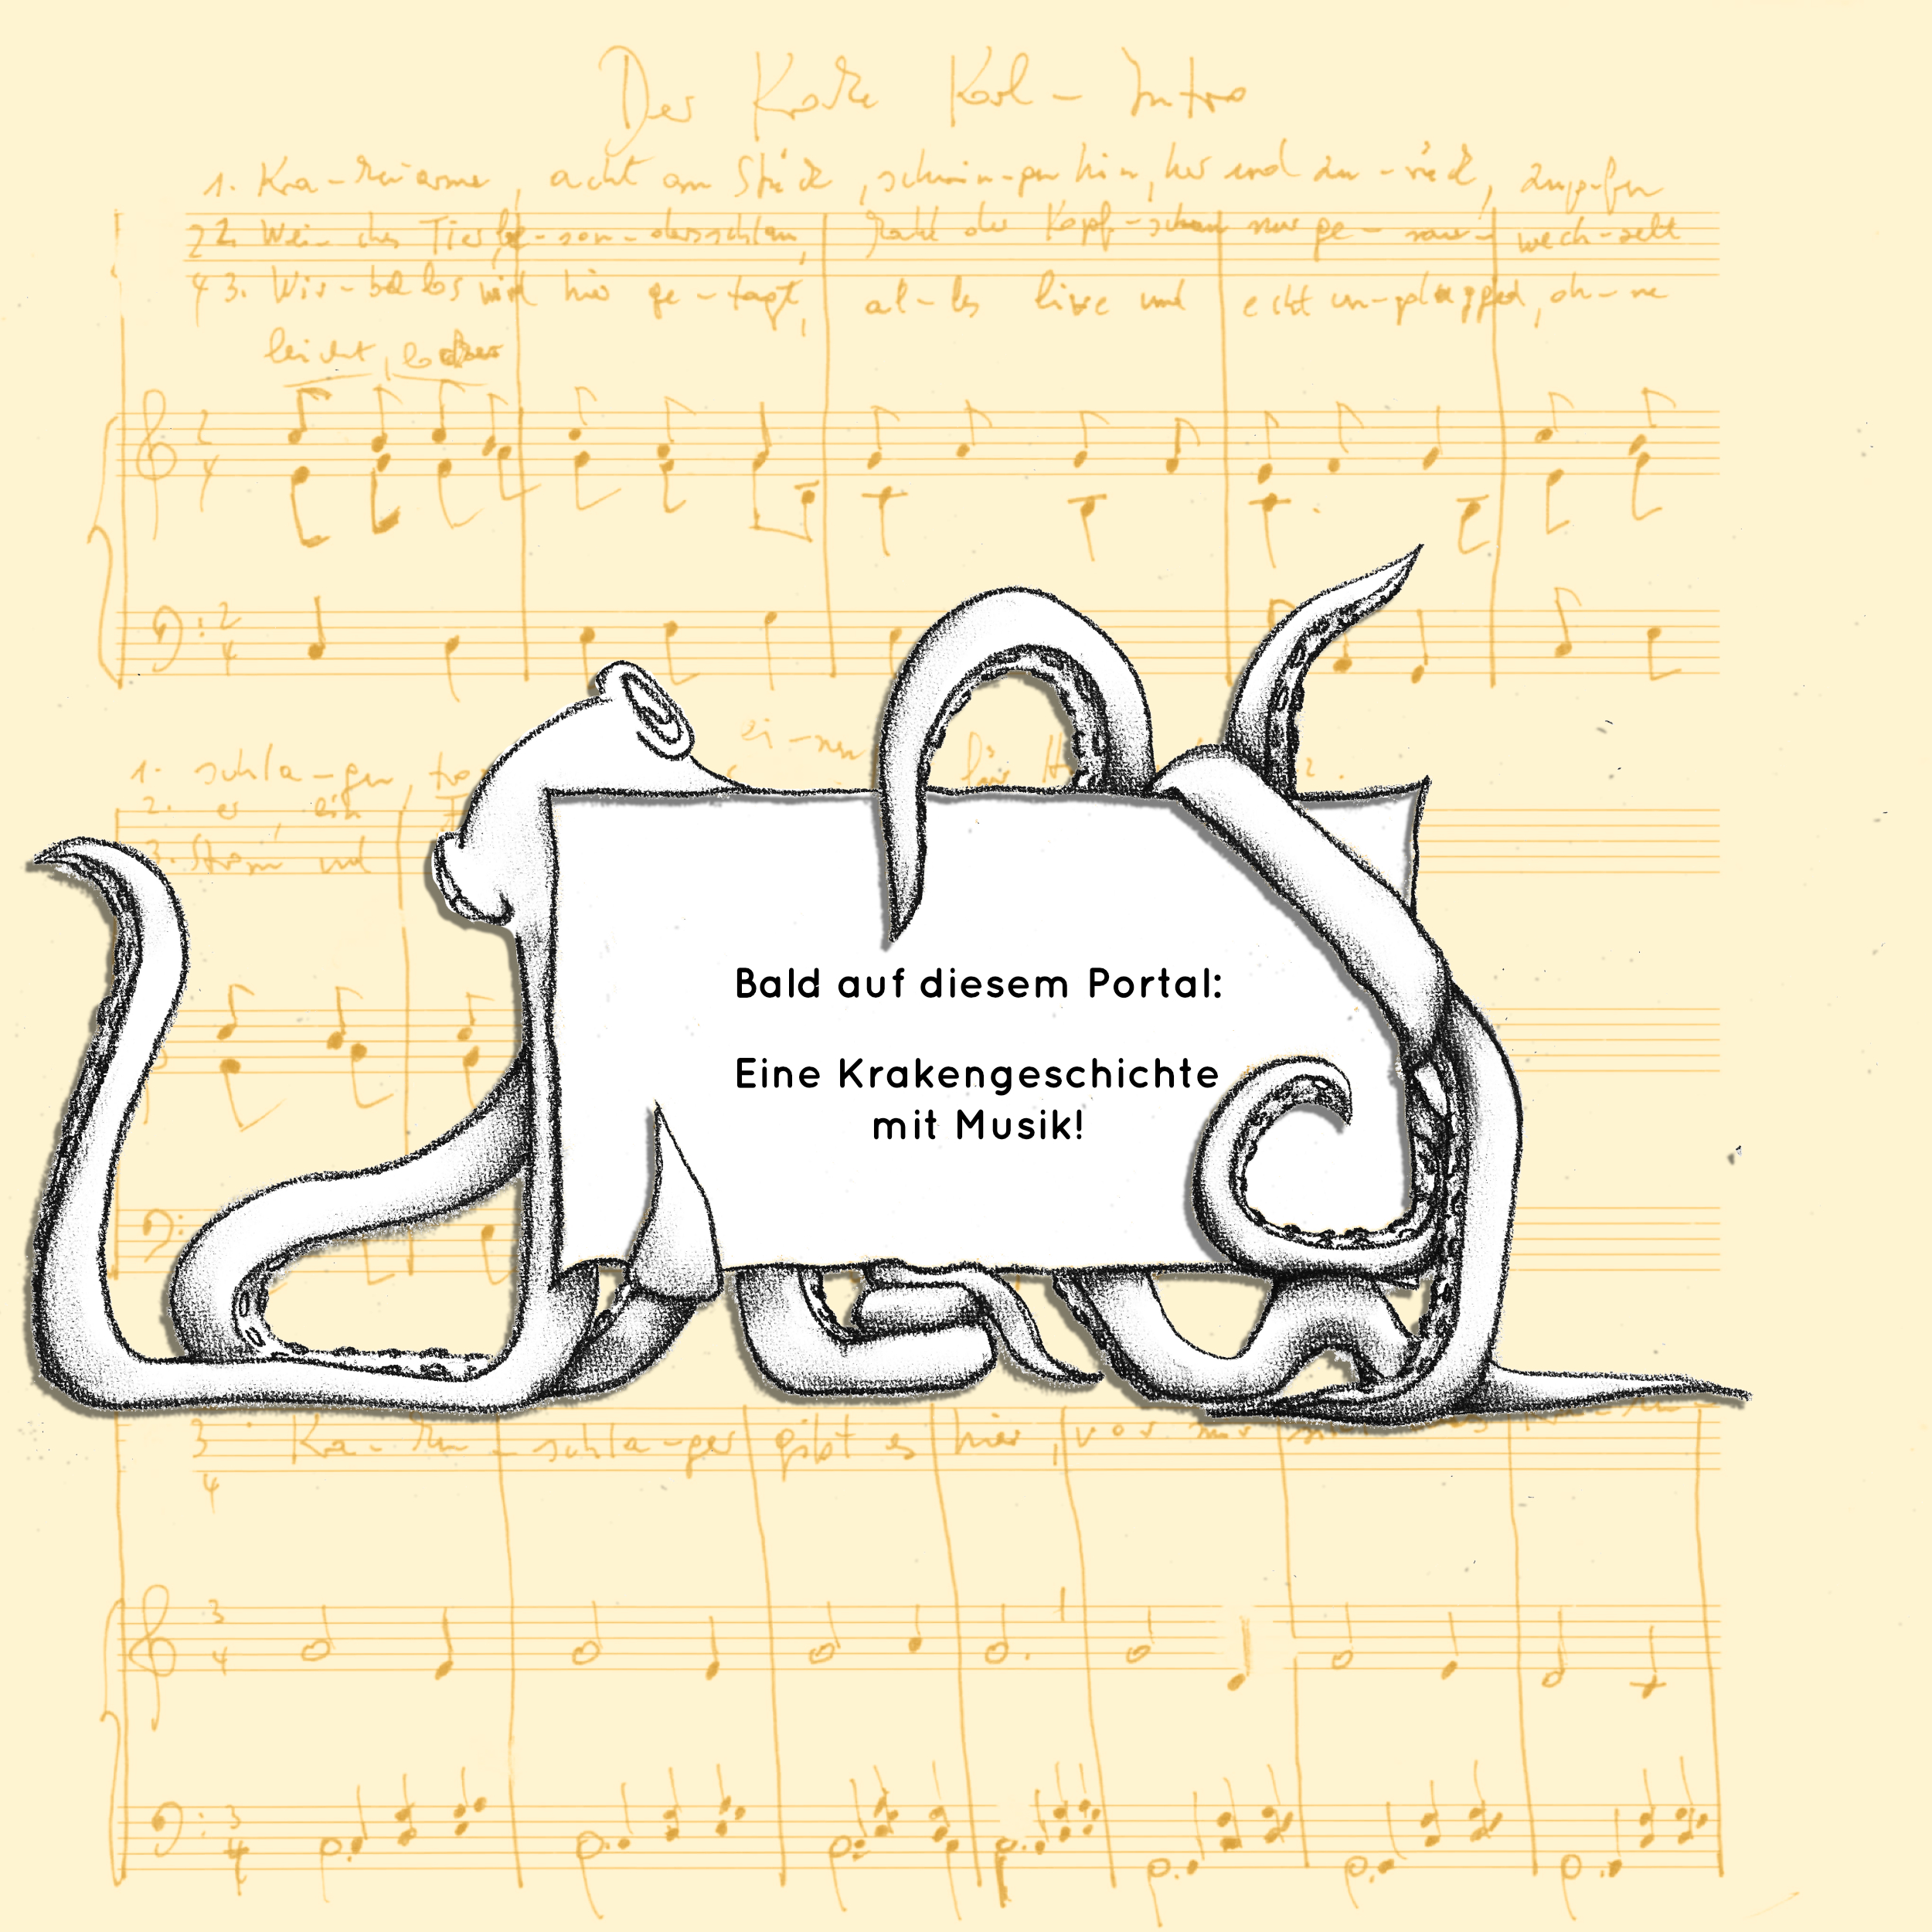 Der Krake Karl - Intro
1. Kra-kenarme, acht am Stück, schwin-gen hin, her und zu-rück, zupfen
2. Wei-ches Tier be-son-dersschlau, Kopf- nur ge-nau- wech-selt
3. Wir-bellos wird hier ge-tagt, al-les live und echt un-plugged, oh-ne
leicht, locker
ei-nen für
1. schla-gen,
2. er, ein
3. Strom und
Bald auf diesem Portal:
Eine Krakengeschichte
mit Musik!
Kra-ken-schla-ger gibt es hier, vor